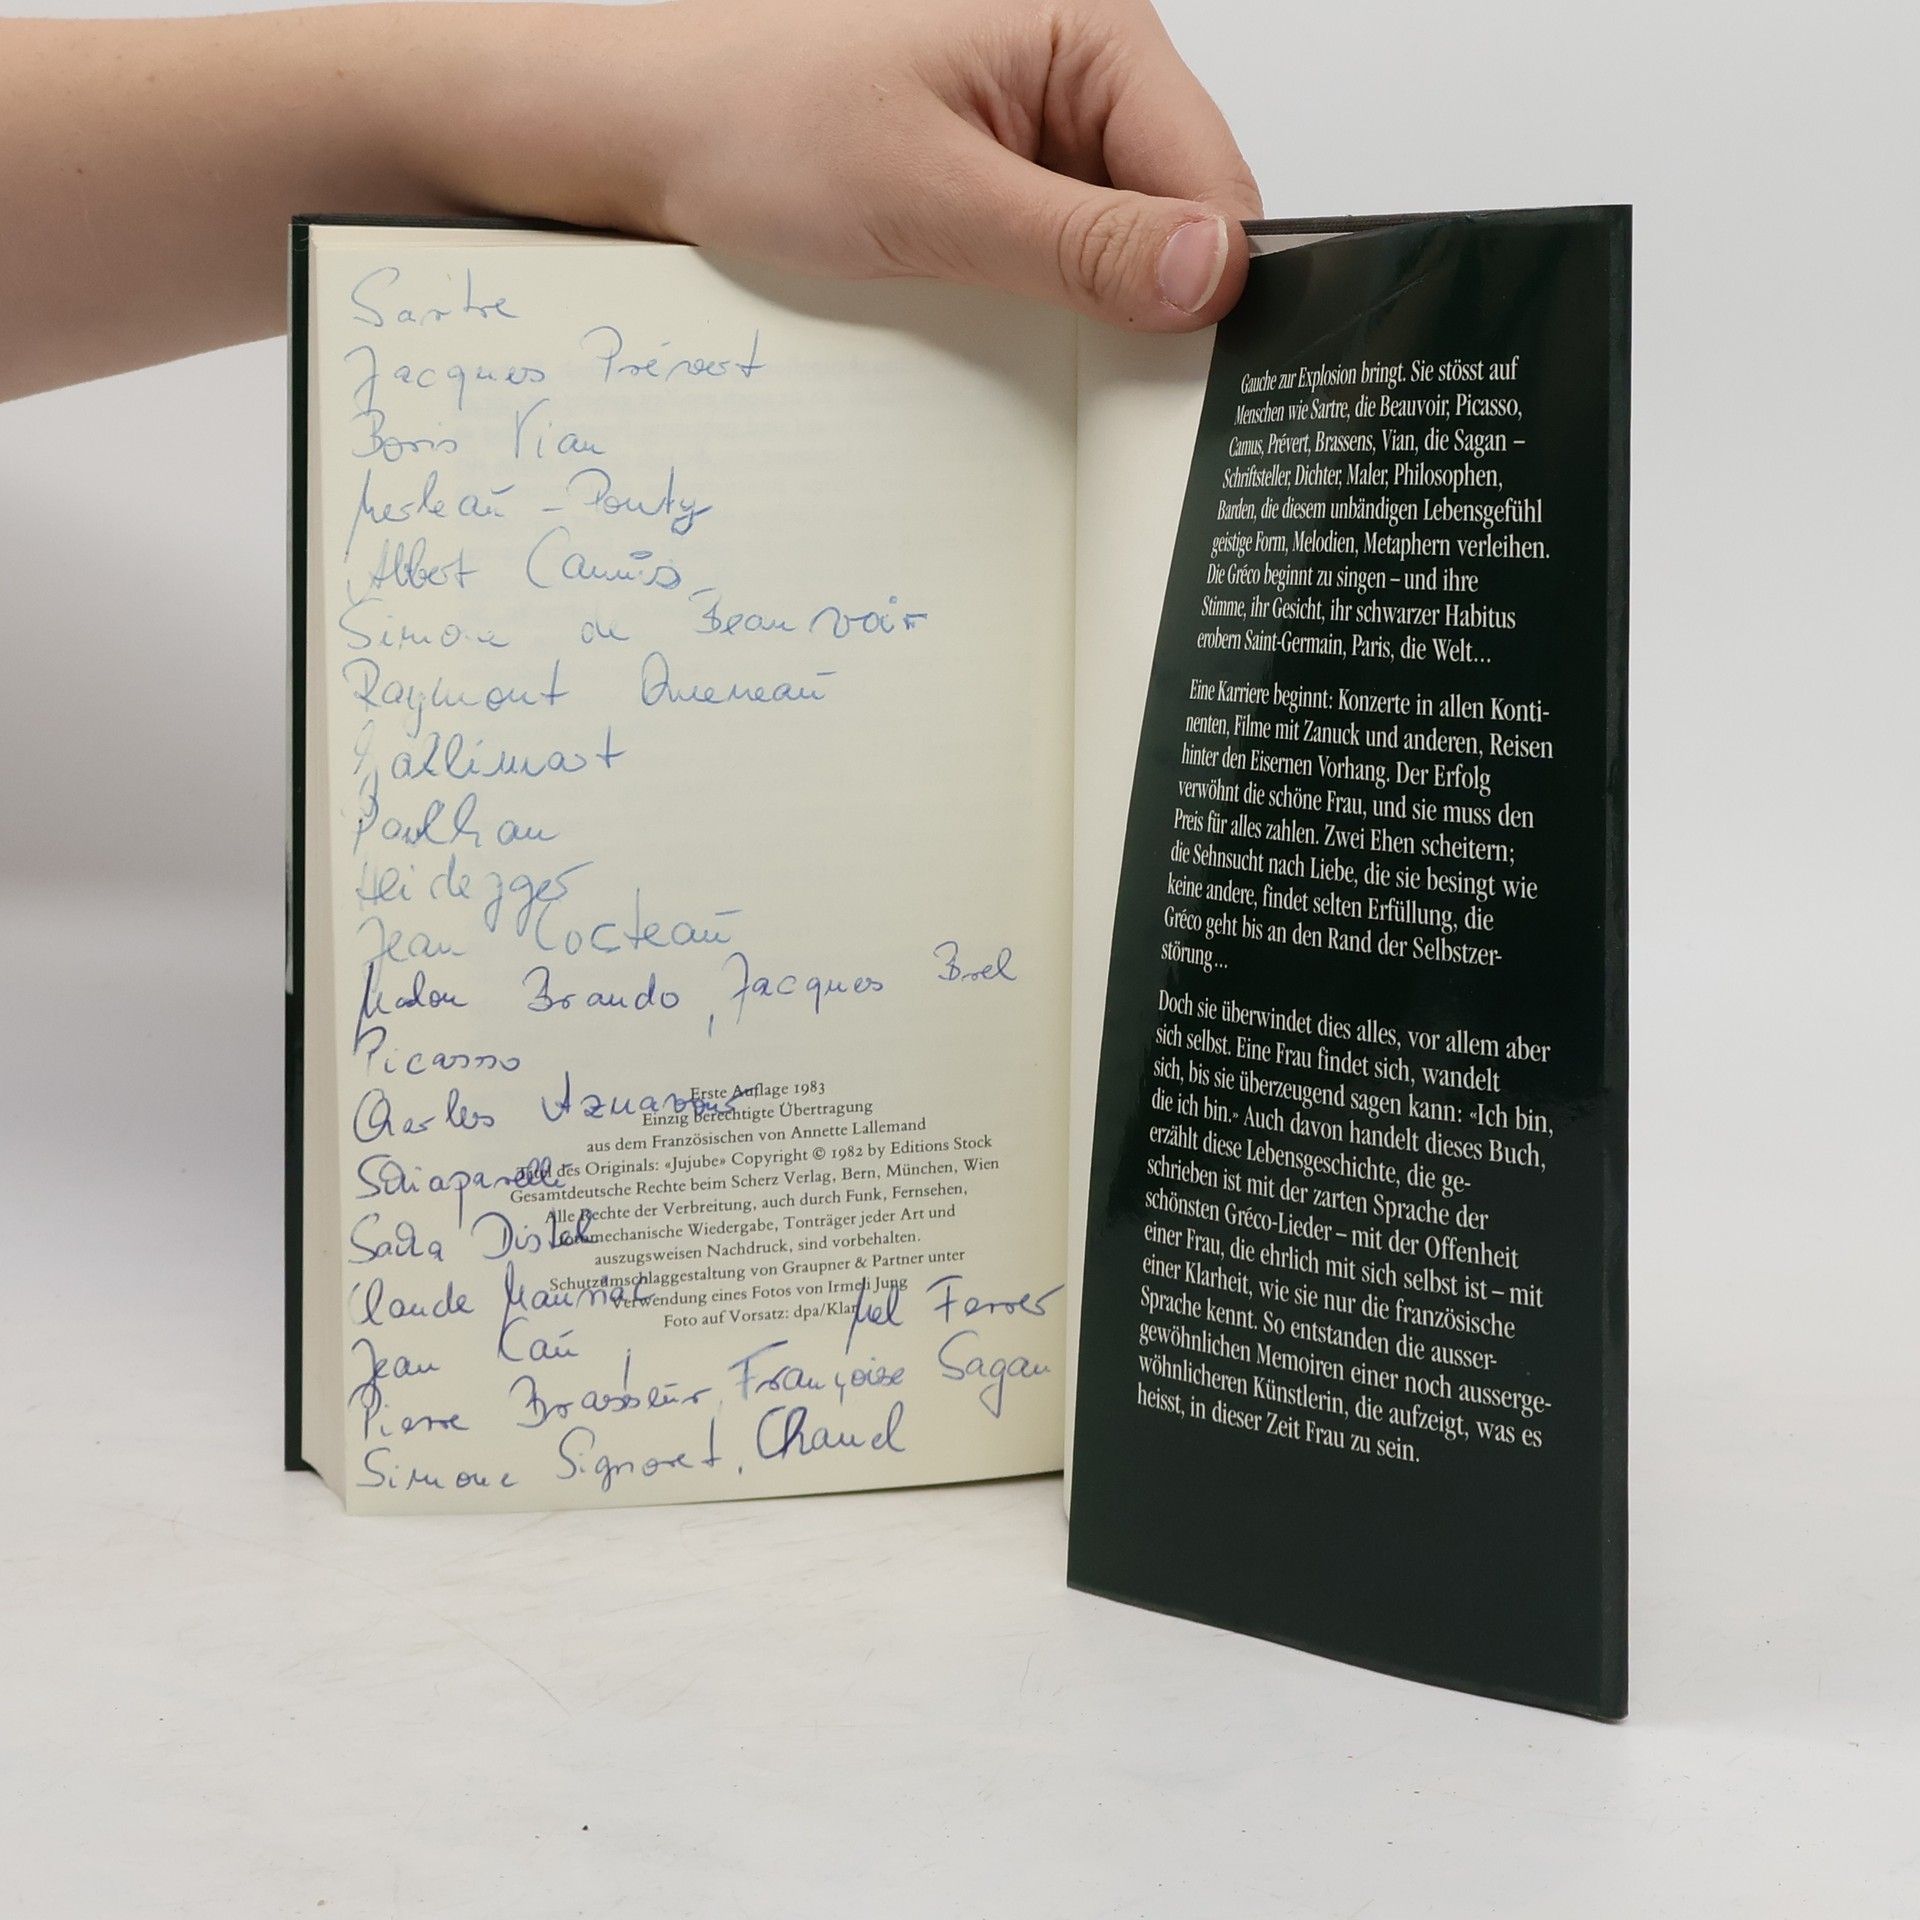 Sartre
Jacques Prévert
Boris Vian
Merleau - Ponty
Albert Camus
Simone de Beauvoir
Raymont Queneau
Gallimart
Paulhan
Heidegger
Jean Cocteau
Malon Brando, Jacques Brel
Picasso
Charles Aznavour
Schiaparelli
Sacha Distel
Claude Mauriac
Mel Ferrer
Jean Cau
Pierre Brasseur, Françoise Sagan
Simone Signoret, Chanel
Erste Auflage 1983
Einzig berechtigte Übertragung
aus dem Französischen von Annette Lallemand
Titel des Originals: «Jujube» Copyright © 1982 by Editions Stock
Gesamtdeutsche Rechte beim Scherz Verlag, Bern, München, Wien
Alle Rechte der Verbreitung, auch durch Funk, Fernsehen,
fotomechanische Wiedergabe, Tonträger jeder Art und
auszugsweisen Nachdruck, sind vorbehalten.
Schutzumschlaggestaltung von Graupner & Partner unter
Verwendung eines Fotos von Irmeli Jung
Foto auf Vorsatz: dpa/Klar
Gauche zur Explosion bringt. Sie stösst auf
Menschen wie Sartre, die Beauvoir, Picasso,
Camus, Prévert, Brassens, Vian, die Sagan –
Schriftsteller, Dichter, Maler, Philosophen,
Barden, die diesem unbändigen Lebensgefühl
geistige Form, Melodien, Metaphern verleihen.
Die Gréco beginnt zu singen – und ihre
Stimme, ihr Gesicht, ihr schwarzer Habitus
erobern Saint-Germain, Paris, die Welt...
Eine Karriere beginnt: Konzerte in allen Konti-
nenten, Filme mit Zanuck und anderen, Reisen
hinter den Eisernen Vorhang. Der Erfolg
verwöhnt die schöne Frau, und sie muss den
Preis für alles zahlen. Zwei Ehen scheitern;
die Sehnsucht nach Liebe, die sie besingt wie
keine andere, findet selten Erfüllung, die
Gréco geht bis an den Rand der Selbstzer-
störung...
Doch sie überwindet dies alles, vor allem aber
sich selbst. Eine Frau findet sich, wandelt
sich, bis sie überzeugend sagen kann: «Ich bin,
die ich bin.» Auch davon handelt dieses Buch,
erzählt diese Lebensgeschichte, die ge-
schrieben ist mit der zarten Sprache der
schönsten Gréco-Lieder – mit der Offenheit
einer Frau, die ehrlich mit sich selbst ist – mit
einer Klarheit, wie sie nur die französische
Sprache kennt. So entstanden die ausser-
gewöhnlichen Memoiren einer noch ausserge-
wöhnlicheren Künstlerin, die aufzeigt, was es
heisst, in dieser Zeit Frau zu sein.